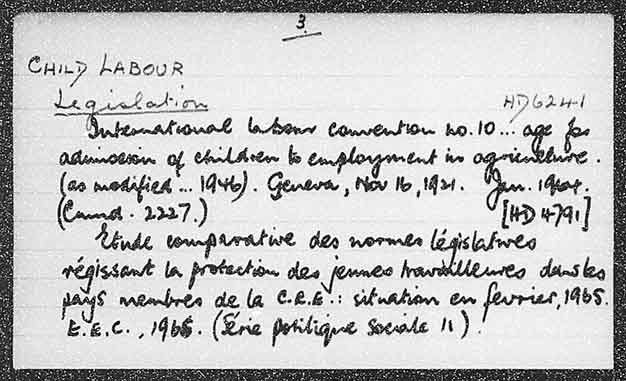 3.
CHILD LABOUR
Legislation HD6241
International labour convention no. 10 ... age for
admission of children to employment in agriculture.
(as modified ... 1946). Geneva, Nov 16, 1921. Jan. 1964.
(Cmnd. 2227.) [HD 4791]
Etude comparative des normes législatives
régissant la protection des jeunes travailleurs dans les
pays membres de la C.E.E.: situation en fevrier, 1965.
E.E.C., 1966. (Série politique sociale 11).